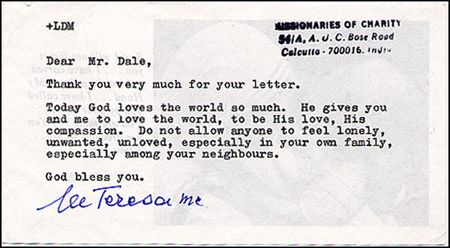 +LDM
MISSIONARIES OF CHARITY
54/A, A. J. C. Bose Road
Calcutta - 700016. India
Dear Mr. Dale,
Thank you very much for your letter.
Today God loves the world so much. He gives you
and me to love the world, to be His love, His
compassion. Do not allow anyone to feel lonely,
unwanted, unloved, especially in your own family,
especially among your neighbours.
God bless you.
Teresa mc